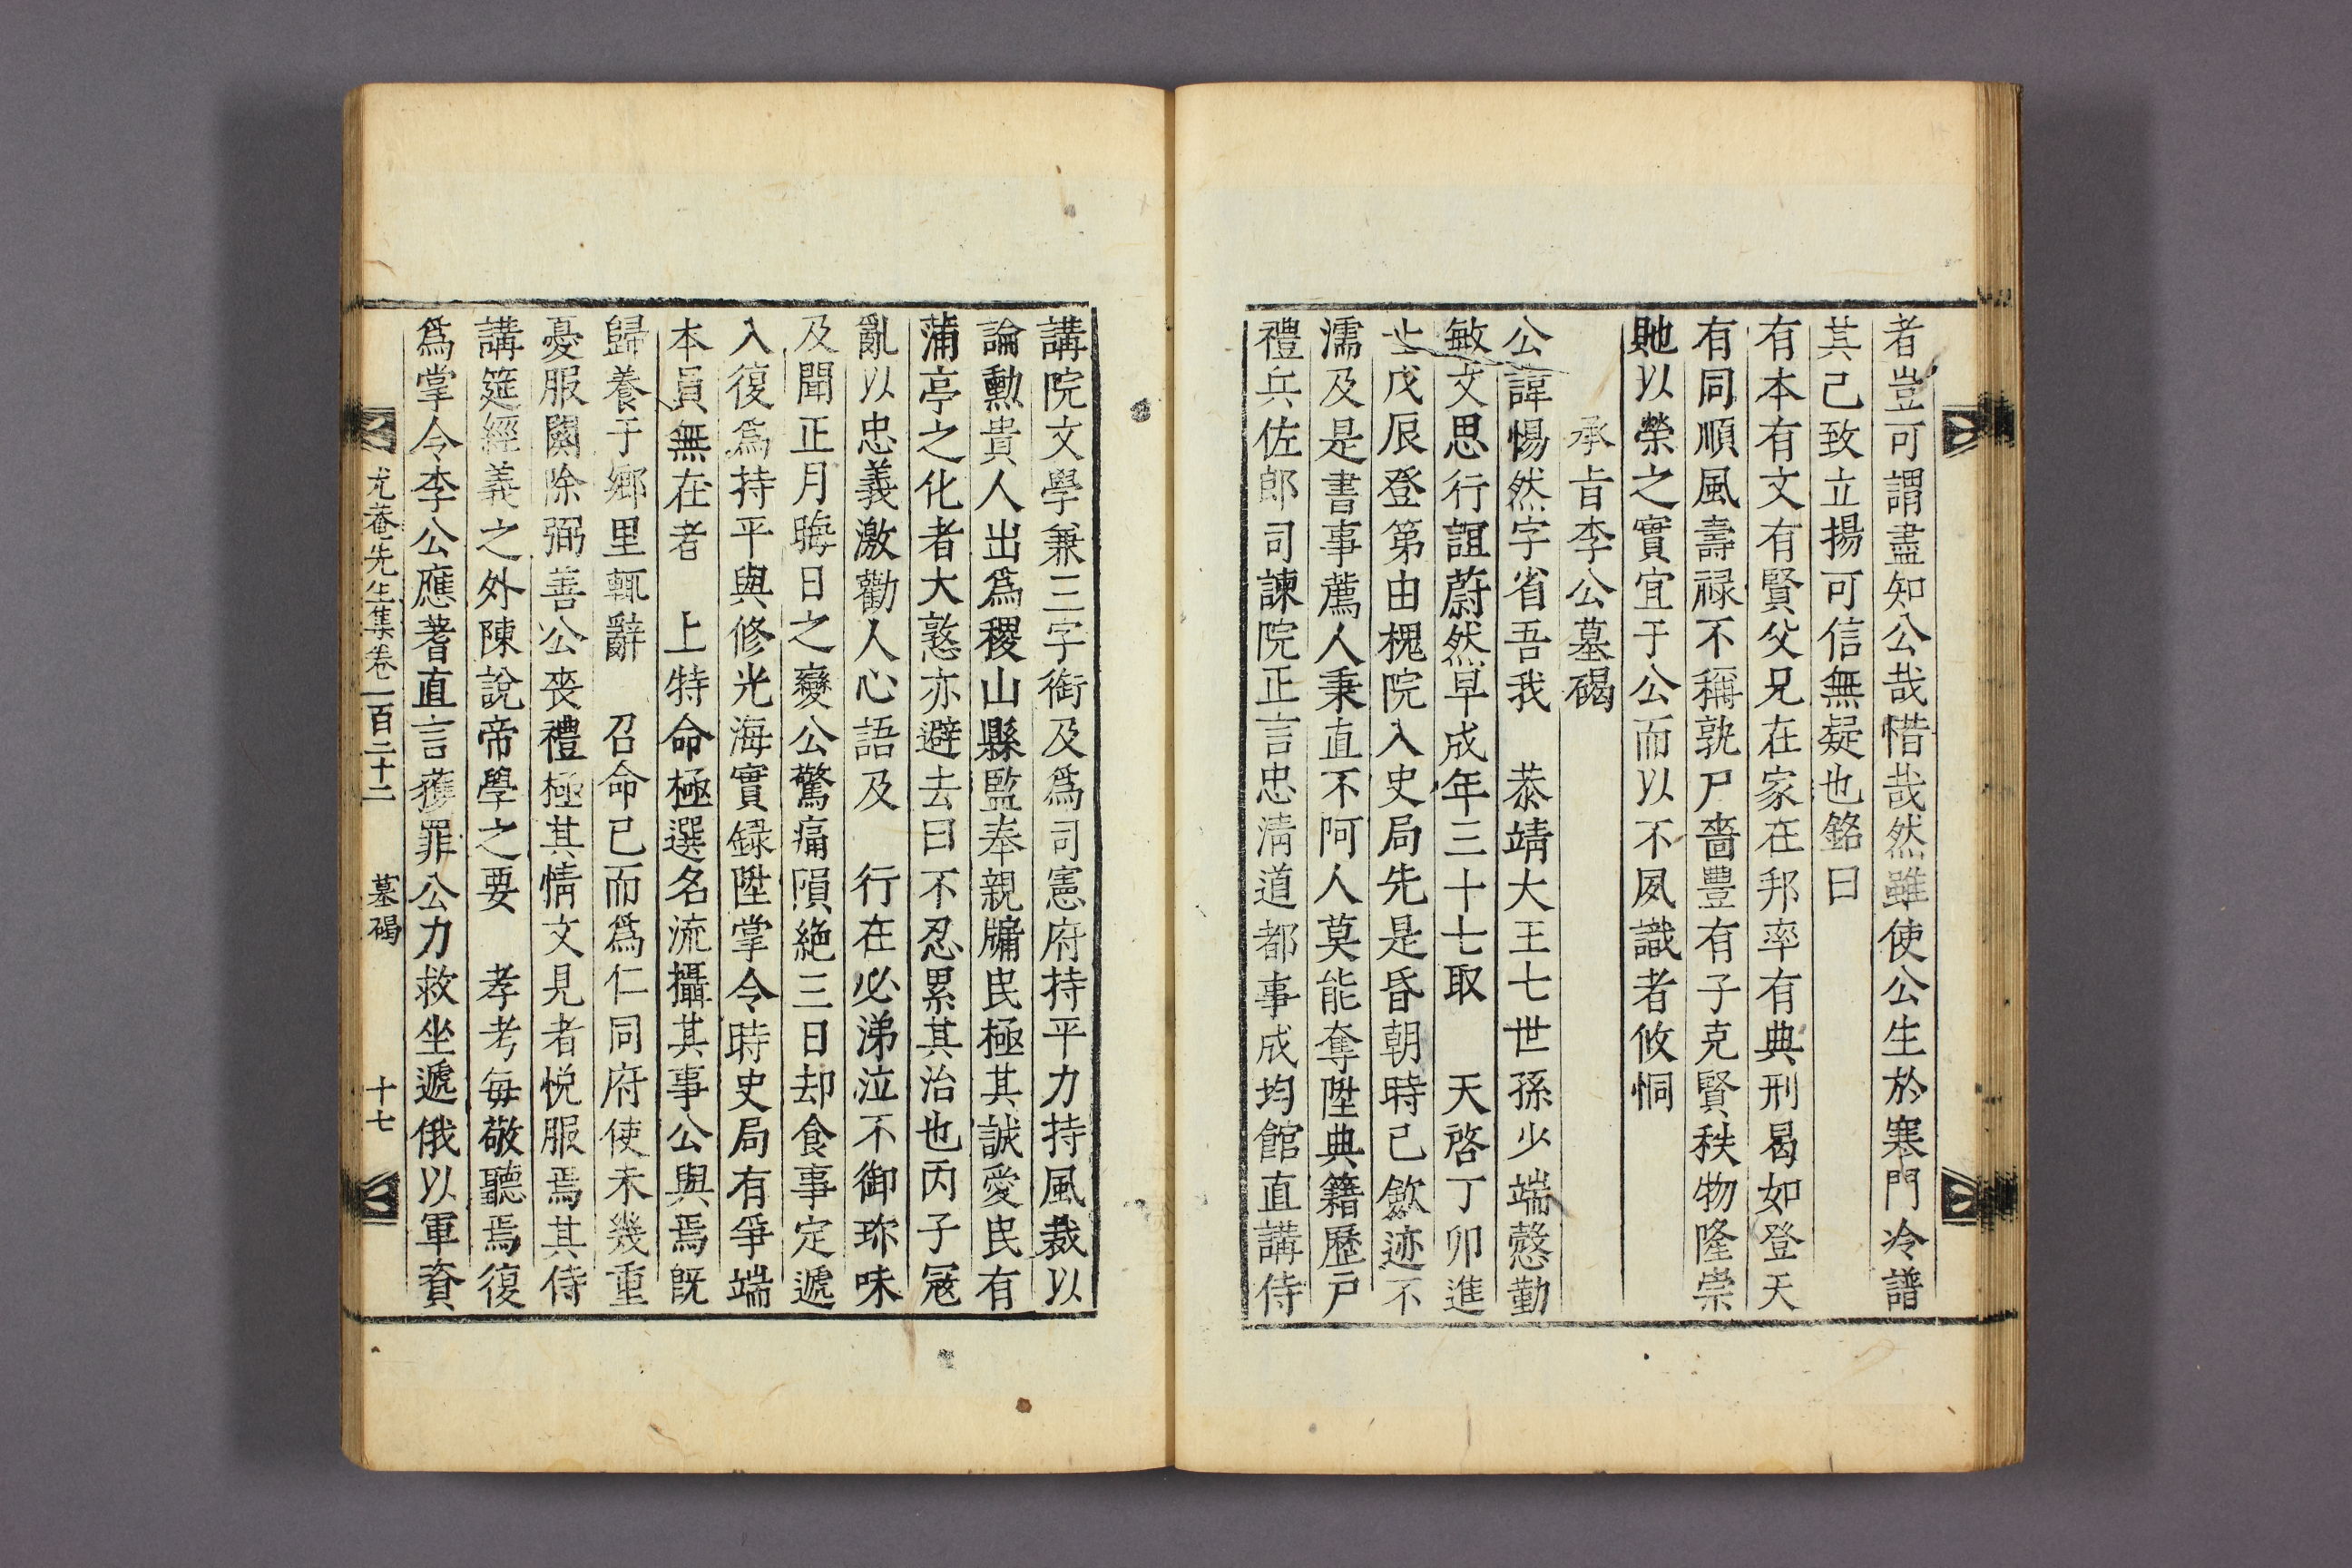 者豈可謂盡知公哉惜哉然雖使公生於寒門冷譜
其己致立揚可信無疑也銘曰
有本有文有賢父兄在家在邦率有典刑曷如登天
有同順風壽祿不稱孰尸嗇豐有子克賢秩物隆崇
貤以榮之實宜于公而以不夙識者攸恫
承旨李公墓碣
公諱惕然字省吾我 恭靖大王七世孫少端慤勤
敏文思行誼蔚然早成年三十七取 天啓丁卯進
士戊辰登第由槐院入史局先是昏朝時己斂迹不
濡及是書事薦人秉直不阿人莫能奪陞典籍歷戶
禮兵佐郎司諫院正言忠淸道都事成均館直講侍
講院文學兼三字銜及爲司憲府持平力持風裁以
論勳貴人出爲稷山縣監奉親牖民極其誠愛民有
蒲亭之化者大憝亦避去曰不忍累其治也丙子冦
亂以忠義激勸人心語及 行在必涕泣不御珎味
及聞正月晦日之變公驚痛隕絶三日却食事定遞
入復爲持平與修光海實錄陞掌令時史局有爭端
本員無在者 上特命極選名流攝其事公與焉旣
歸養于鄕里輒辭 召命已而爲仁同府使未幾重
憂服闋除弼善公喪禮極其情文見者悅服焉其侍
講筵經義之外陳說帝學之要 孝考每敬聽焉復
爲掌令李公應蓍直言獲罪公力救坐遞俄以軍資
尤菴先生集卷一百二十二 墓碣 十七